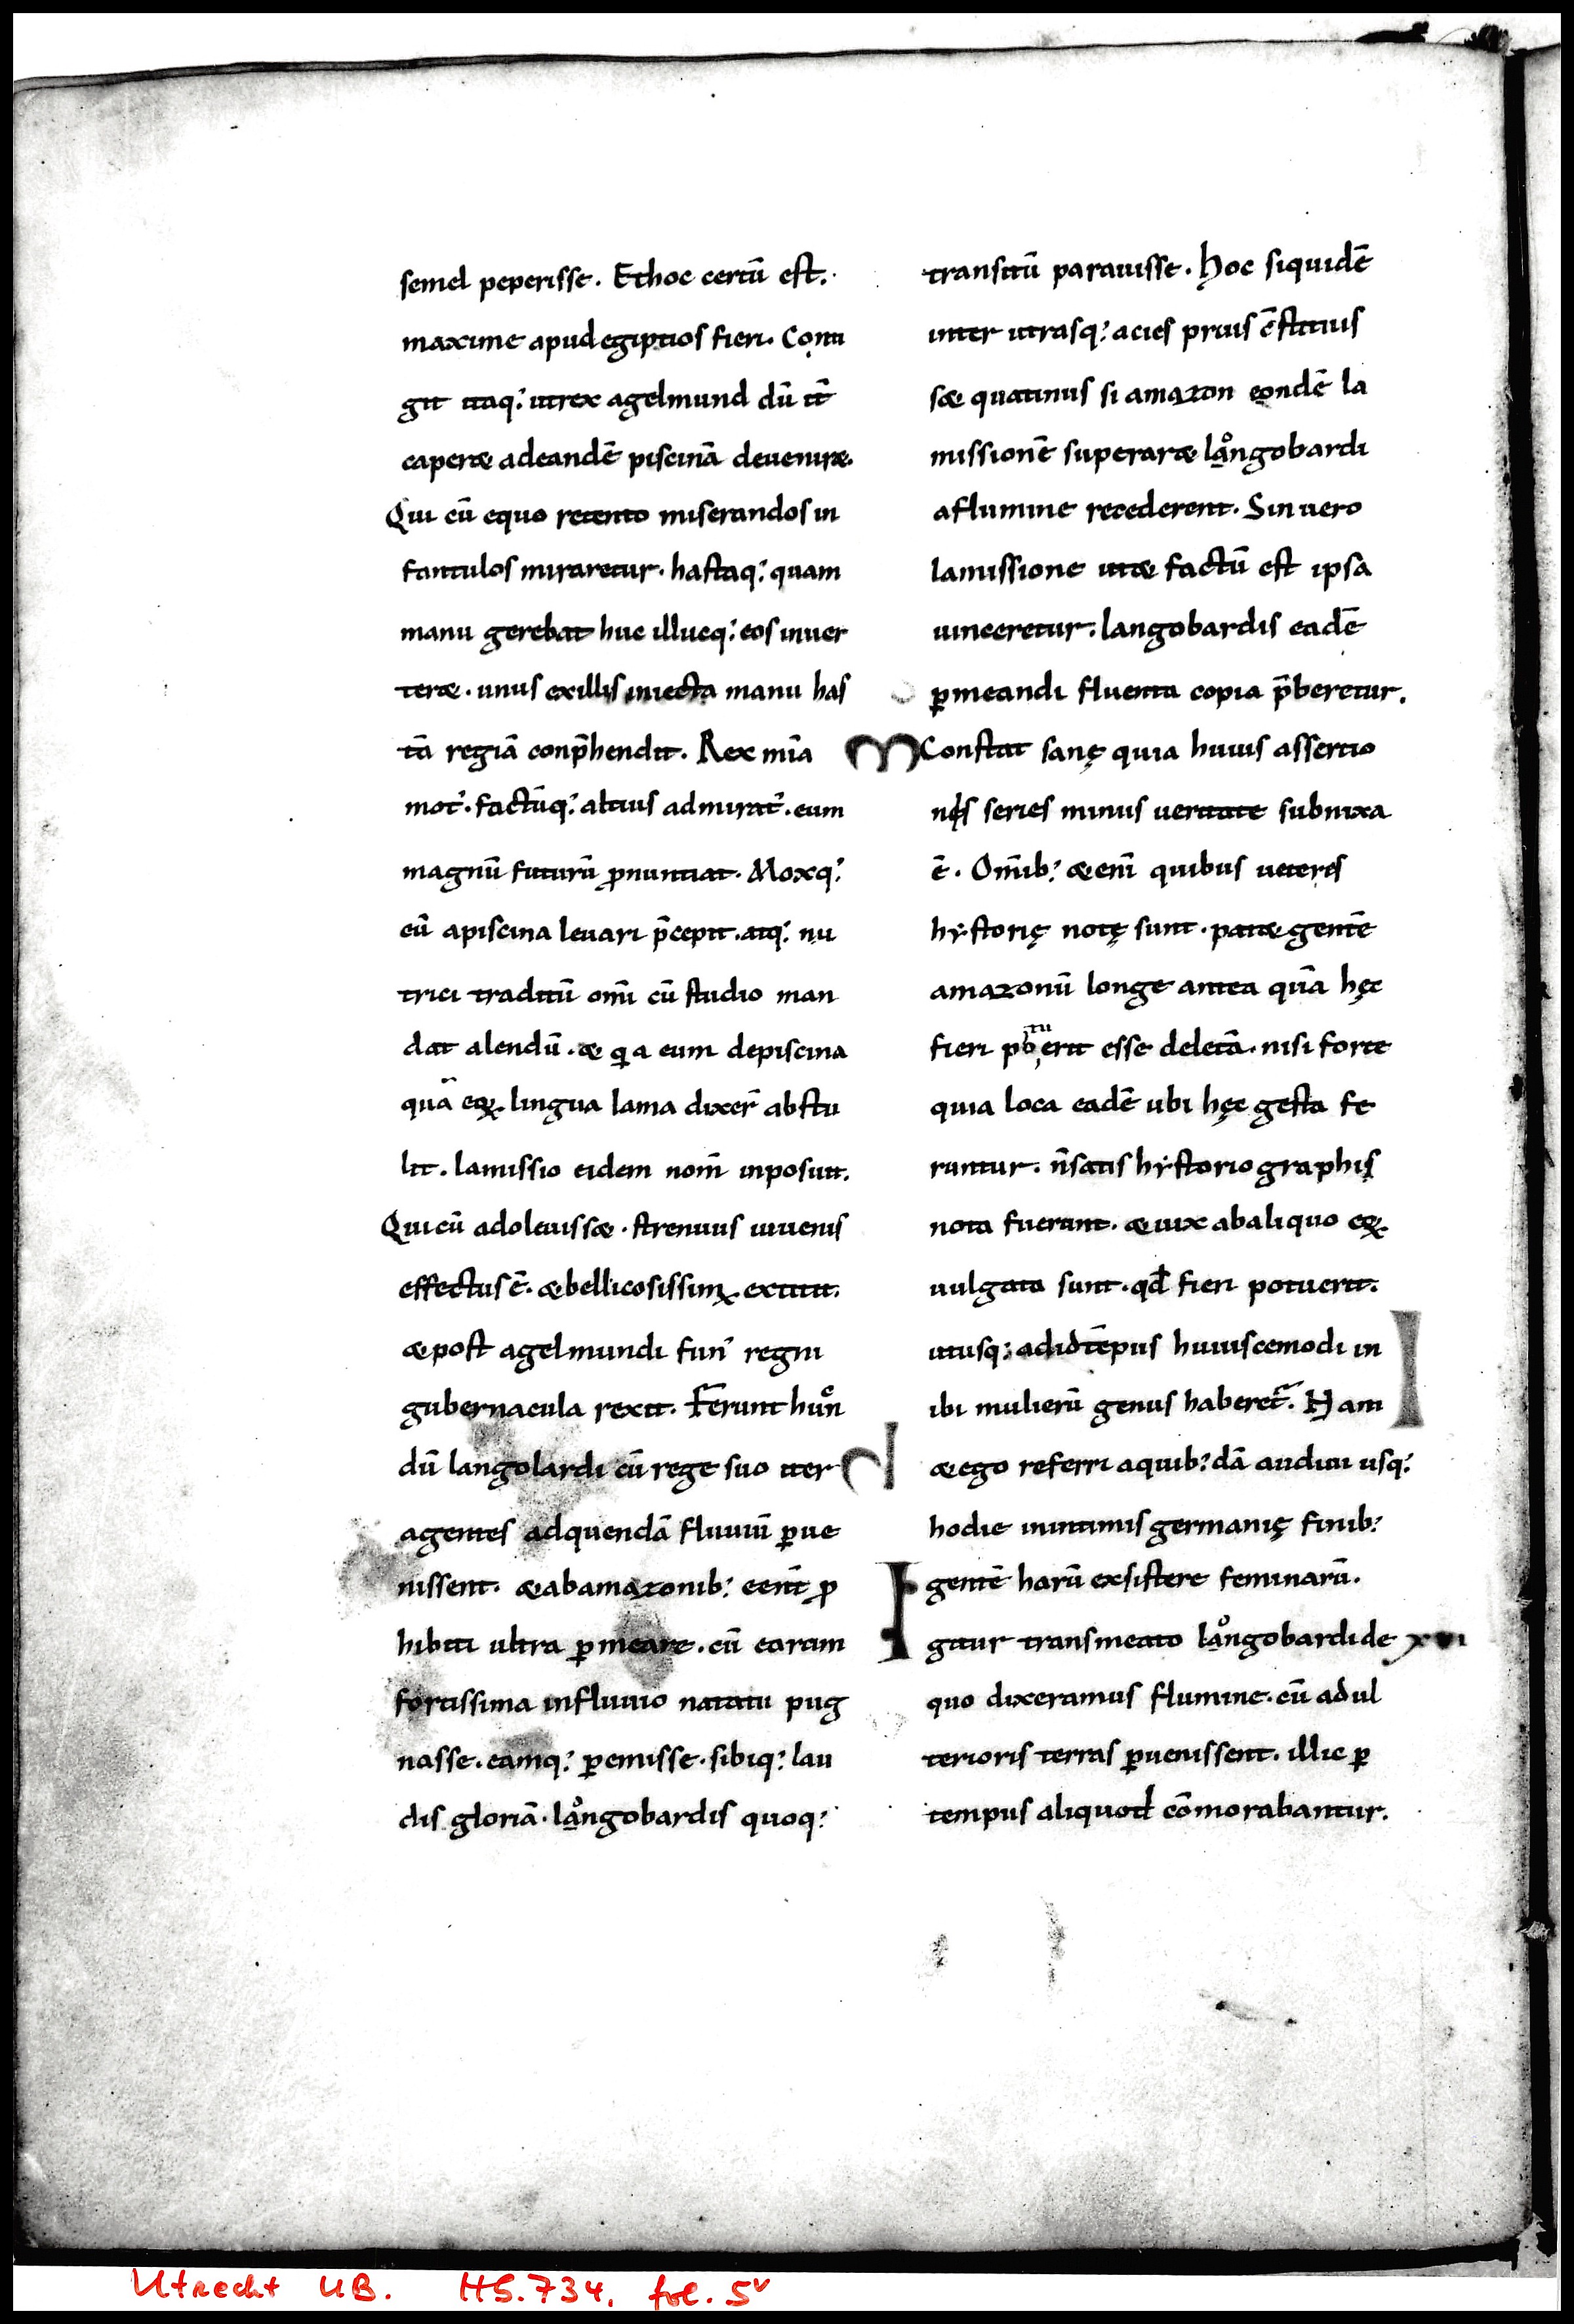 semel peperisse. Ethoc certū est.
maxime apud egiptios fieri. Conti
git itaq; utrex agelmund dū it̄
caperæ adeandē piscinā deueniræ.
Qui cū equo retento miserandos in
fantulos miraretur. hastaq; quam
manu gerebat huc illucq; eos inuer
teræ. unus exillis iniecta manu has
tā regiā conp̄hendit. Rex mīa
mot'. factūq; altius admirat'. eum
magnū futurū ꝓnuntiat. Moxq;
eū apiscina leuari p̄cepit. atq; nu
trici traditū om̄i cū studio man
dat alendū. æ qia eum depiscina
quā eoꝝ lingua lama dixer̄ abstu
lit. lamissio eidem nom̄ inposuit.
Qui cū adoleuissæ. strenuus iuuenis
effectus ē. æ bellicosissimꝰ extitit.
æ post agelmundi fun' regni
gubernacula rexit. Ferunt huͦn
dū langolardi cū rege suo iter
agentes adquendā fluuiū ꝑue
nissent. æ abamazonib; eent̄ ꝓ
hibiti ultra ꝑmeare. cū earum
fortissima influuio natatu pug
nasse. eamq; ꝑemisse. sibiq; lau
dis gloriā. laͦngobardis quoq;
transitū parauisse. Hoc siquidē
inter utrasq; acies prius c̄stituis
sæ quatinus si amazon eandē la
missionē superaræ laͦngobardi
aflumine recederent. Sin uero
lamissione utæ factū est ipsa
uinceretur. langobardis eadē
ꝑmeandi fluenta copia p̄beretur.
Constat sanę quia huius assertio
nis series minus ueritate subnixa
ē. Om̄ib; æ eni᷎ quibus ueteres
hẏstorię notę sunt. patæ gentē
amazonū longe antea quā hęc
fieri potuerit esse deletā. nisi forte
quia loca eadē ubi hęc gesta fe
runtur. n̄ satis hẏstoriographis
nota fuerant. æ uix abaliquo eoꝝ
uulgata sunt. qd̄ fieri potuerit.
utusq; adidtēpus huiuscemodi in
ibi mulierū genus haberet̄. Nam
æ ego referri aquib; dā audiui usq;
hodie inintimis germanię finib;
gentē harū exsistere feminarū.
Igitur transmeato laͦngobardi de xvi
quo dixeramus flumine. cū ad ul
terioris terras ꝑuenissent. illic ꝑ
tempus aliquod cōmorabantur.
Utrecht UB. HS. 734, fol. 5v